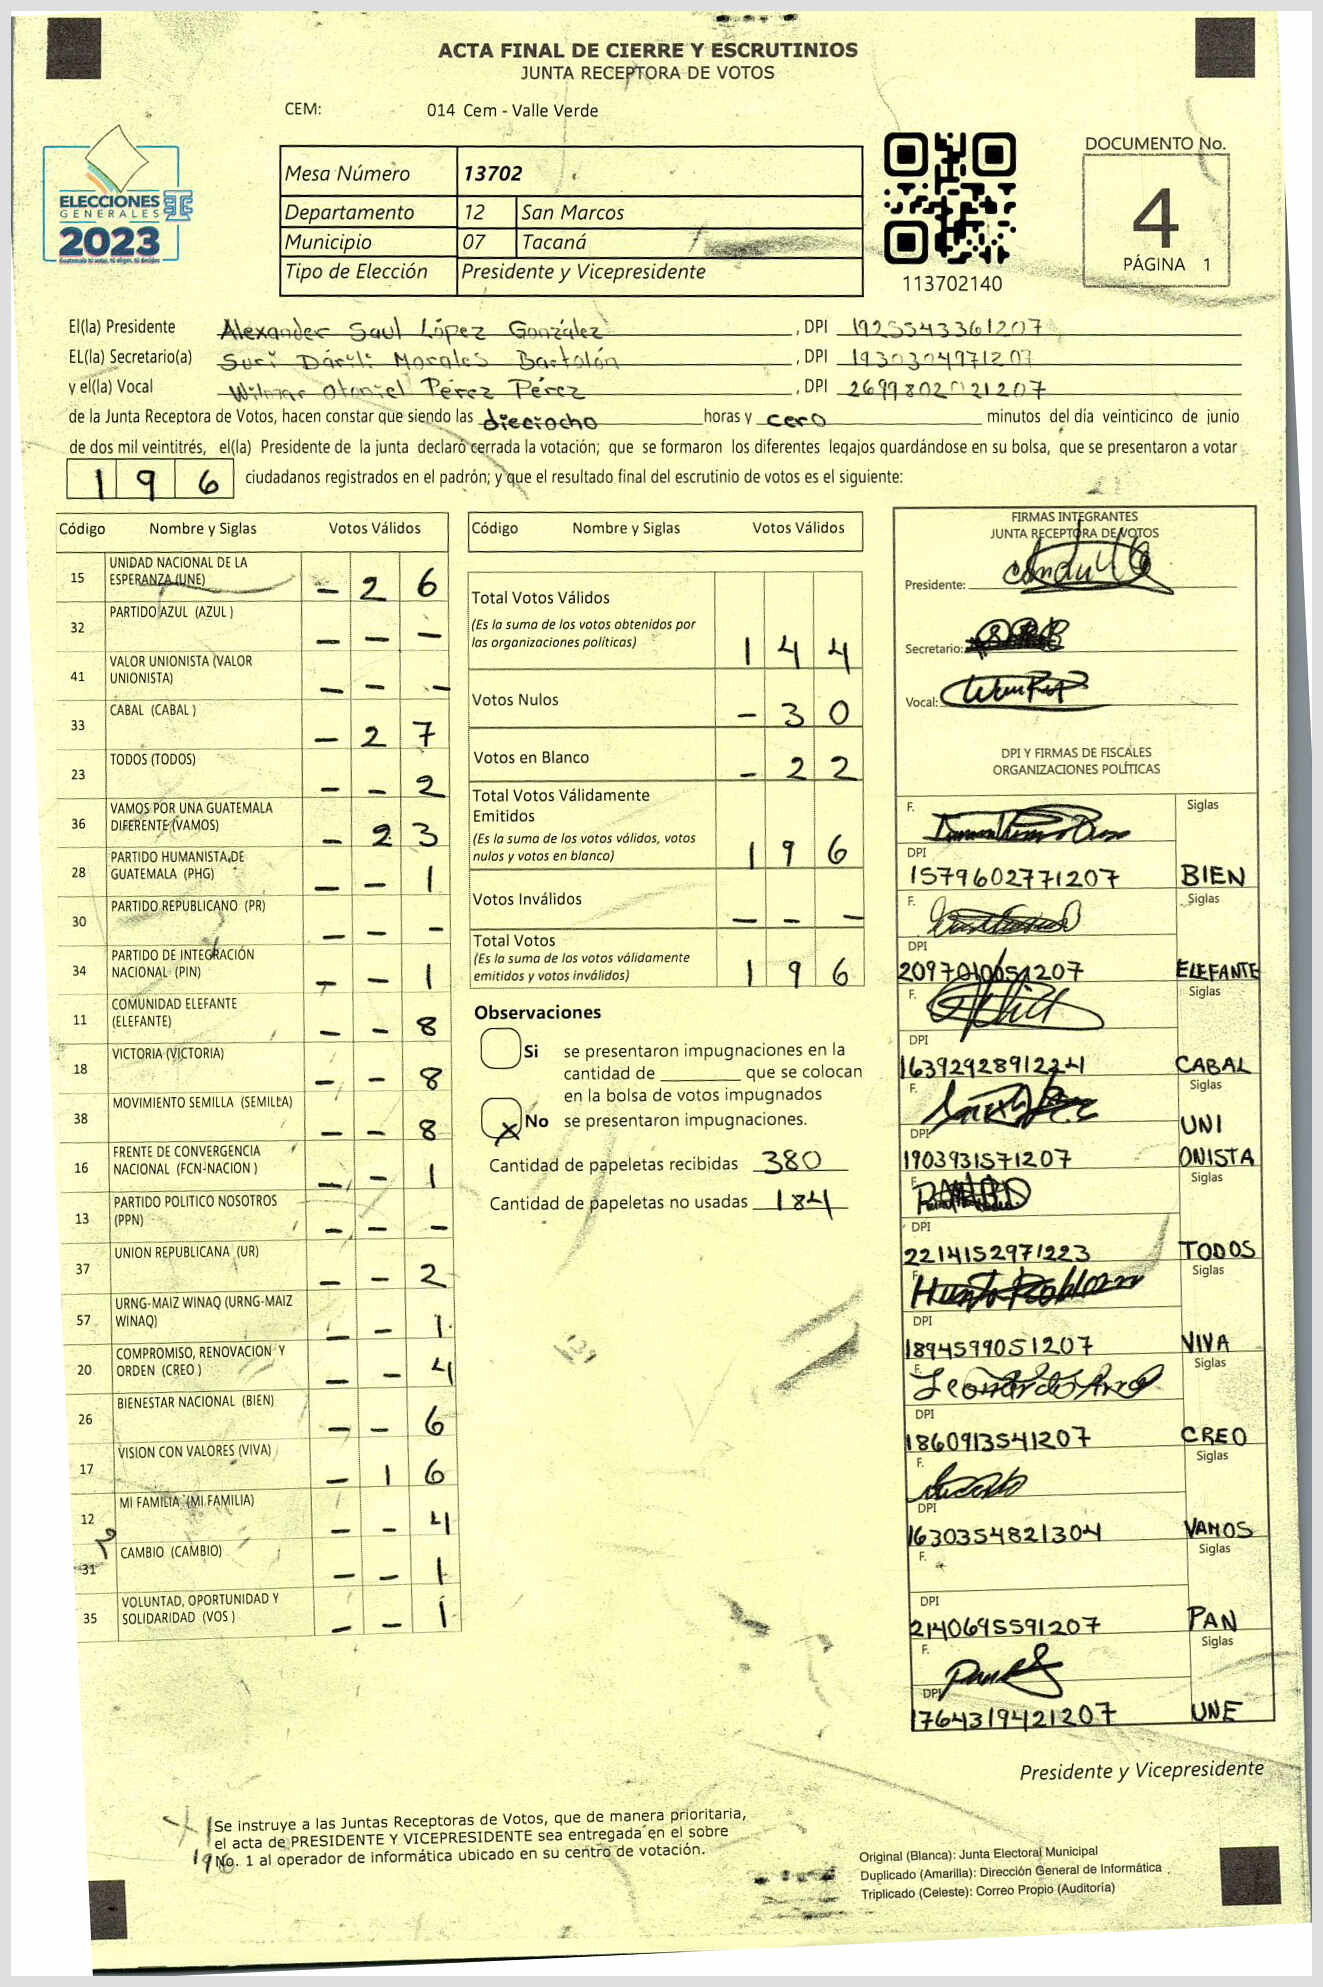 ACTA FINAL DE CIERRE Y ESCRUTINIOS
JUNTA RECEPTORA DE VOTOS
CEM: 014 Cem - Valle Verde
ELECCIONES
GENERALES
2023
Mesa Número 13702
Departamento 12 San Marcos
Municipio 07 Tacaná
Tipo de Elección Presidente y Vicepresidente
113702140
DOCUMENTO No.
4
PÁGINA 1
El(la) Presidente Alexander Saul López González, DPI 1925543361207
EL(la) Secretario(a) Morales Bartolón, DPI 1930304971207
y el(la) Vocal Wilmar Otoniel Pérez Pérez, DPI
de la Junta Receptora de Votos, hacen constar que siendo las dieciocho horas y cero minutos del día veinticinco de junio
de dos mil veintitrés, el(la) Presidente de la junta declaró cerrada la votación; que se formaron los diferentes legajos quardándose en su bolsa, que se presentaron a votar
196 ciudadanos registrados en el padrón; y que el resultado final del escrutinio de votos es el siguiente:
Código Nombre y Siglas Votos Válidos
15 UNIDAD NACIONAL DE LA ESPERANZA (UNE) - 2 6
32 PARTIDO AZUL (AZUL ) - - -
41 VALOR UNIONISTA (VALOR UNIONISTA) - - -
33 CABAL (CABAL ) - 2 7
23 TODOS (TODOS) - - 2
36 VAMOS POR UNA GUATEMALA DIFERENTE (VAMOS) - 2 3
28 PARTIDO HUMANISTA DE GUATEMALA (PHG) - - 1
30 PARTIDO REPUBLICANO (PR) - - -
34 PARTIDO DE INTEGRACIÓN NACIONAL (PIN) - - 1
11 COMUNIDAD ELEFANTE (ELEFANTE) - - 8
18 VICTORIA (VICTORIA) - - 8
38 MOVIMIENTO SEMILLA (SEMILLA) - - 8
16 FRENTE DE CONVERGENCIA NACIONAL (FCN-NACION ) - - 1
13 PARTIDO POLITICO NOSOTROS (PPN) - - -
37 UNION REPUBLICANA (UR) - - 2
57 URNG-MAIZ WINAQ (URNG-MAIZ WINAQ) - - 1
20 COMPROMISO, RENOVACION Y ORDEN (CREO ) - - 4
26 BIENESTAR NACIONAL (BIEN) - - 6
17 VISION CON VALORES (VIVA) - 1 6
12 MI FAMILIA (MI FAMILIA) - - 4
31 CAMBIO (CAMBIO) - - 1
35 VOLUNTAD, OPORTUNIDAD Y SOLIDARIDAD (VOS ) - - 1
Código Nombre y Siglas Votos Válidos
Total Votos Válidos 1 4 4
(Es la suma de los votos obtenidos por
las organizaciones políticas)
Votos Nulos - 3 0
Votos en Blanco - 2 2
Total Votos Válidamente
Emitidos 1 9 6
(Es la suma de los votos válidos, votos
nulos y votos en blanco)
Votos Inválidos - - -
Total Votos 1 9 6
(Es la suma de los votos válidamente
emitidos y votos inválidos)
Observaciones
Si se presentaron impugnaciones en la
cantidad de ________ que se colocan
en la bolsa de votos impugnados
X No se presentaron impugnaciones.
Cantidad de papeletas recibidas 380
Cantidad de papeletas no usadas 184
FIRMAS INTEGRANTES
JUNTA RECEPTORA DE VOTOS
Presidente:
Secretario:
Vocal:
DPI Y FIRMAS DE FISCALES
ORGANIZACIONES POLÍTICAS
F. Siglas
DPI
1579602771207 BIEN
F. Siglas
DPI
ELEFANTE
F. Siglas
DPI
CABAL
F. Siglas
DPI UNI
1903931571207 ONISTA
F. Siglas
DPI
2214152971223 TODOS
F. Siglas
DPI
1894599051207 VIVA
F. Siglas
DPI
1860913541207 CREO
F. Siglas
DPI
1630354821304 VAMOS
F. Siglas
DPI
2140695591207 PAN
F. Siglas
DPI
1764319421207 UNE
Presidente y Vicepresidente
Se instruye a las Juntas Receptoras de Votos, que de manera prioritaria,
el acta de PRESIDENTE Y VICEPRESIDENTE sea entregada en el sobre
No. 1 al operador de informática ubicado en su centro de votación.
Original (Blanca): Junta Electoral Municipal
Duplicado (Amarilla): Dirección General de Informática
Triplicado (Celeste): Correo Propio (Auditoría)